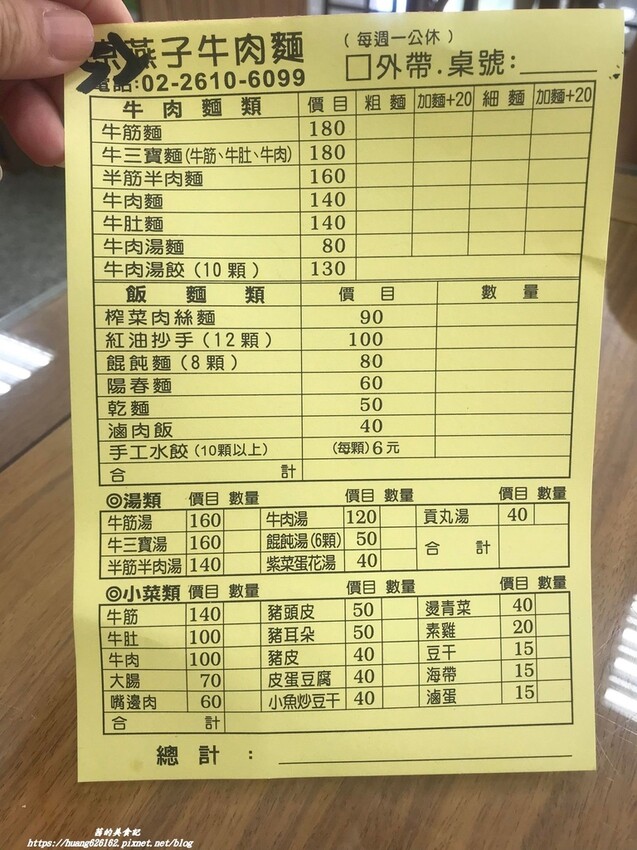 燕子牛肉麵 (每週一公休)
電話:02-2610-6099 □外帶.桌號:
牛肉麵類 價目 粗麵 加麵+20 細麵 加麵+20
牛筋麵 180
牛三寶麵(牛筋、牛肚、牛肉) 180
半筋半肉麵 160
牛肉麵 140
牛肚麵 140
牛肉湯麵 80
牛肉湯餃(10顆) 130
飯麵類 價目 數量
榨菜肉絲麵 90
紅油抄手(12顆) 100
餛飩麵(8顆) 80
陽春麵 60
乾麵 50
滷肉飯 40
手工水餃(10顆以上) (每顆)6元
合計
◎湯類 價目 數量 價目 數量 價目 數量
牛筋湯 160 牛肉湯 120 貢丸湯 40
牛三寶湯 160 餛飩湯(6顆) 50 合計
半筋半肉湯 140 紫菜蛋花湯 40
◎小菜類 價目 數量 價目 數量 價目 數量
牛筋 140 豬頭皮 50 燙青菜 40
牛肚 100 豬耳朵 50 素雞 20
牛肉 100 豬皮 40 豆干 15
大腸 70 皮蛋豆腐 40 海帶 15
嘴邊肉 60 小魚炒豆干 40 滷蛋 15
合計
總計:
舊的美食記
https://huang626162.pixnet.net/blog